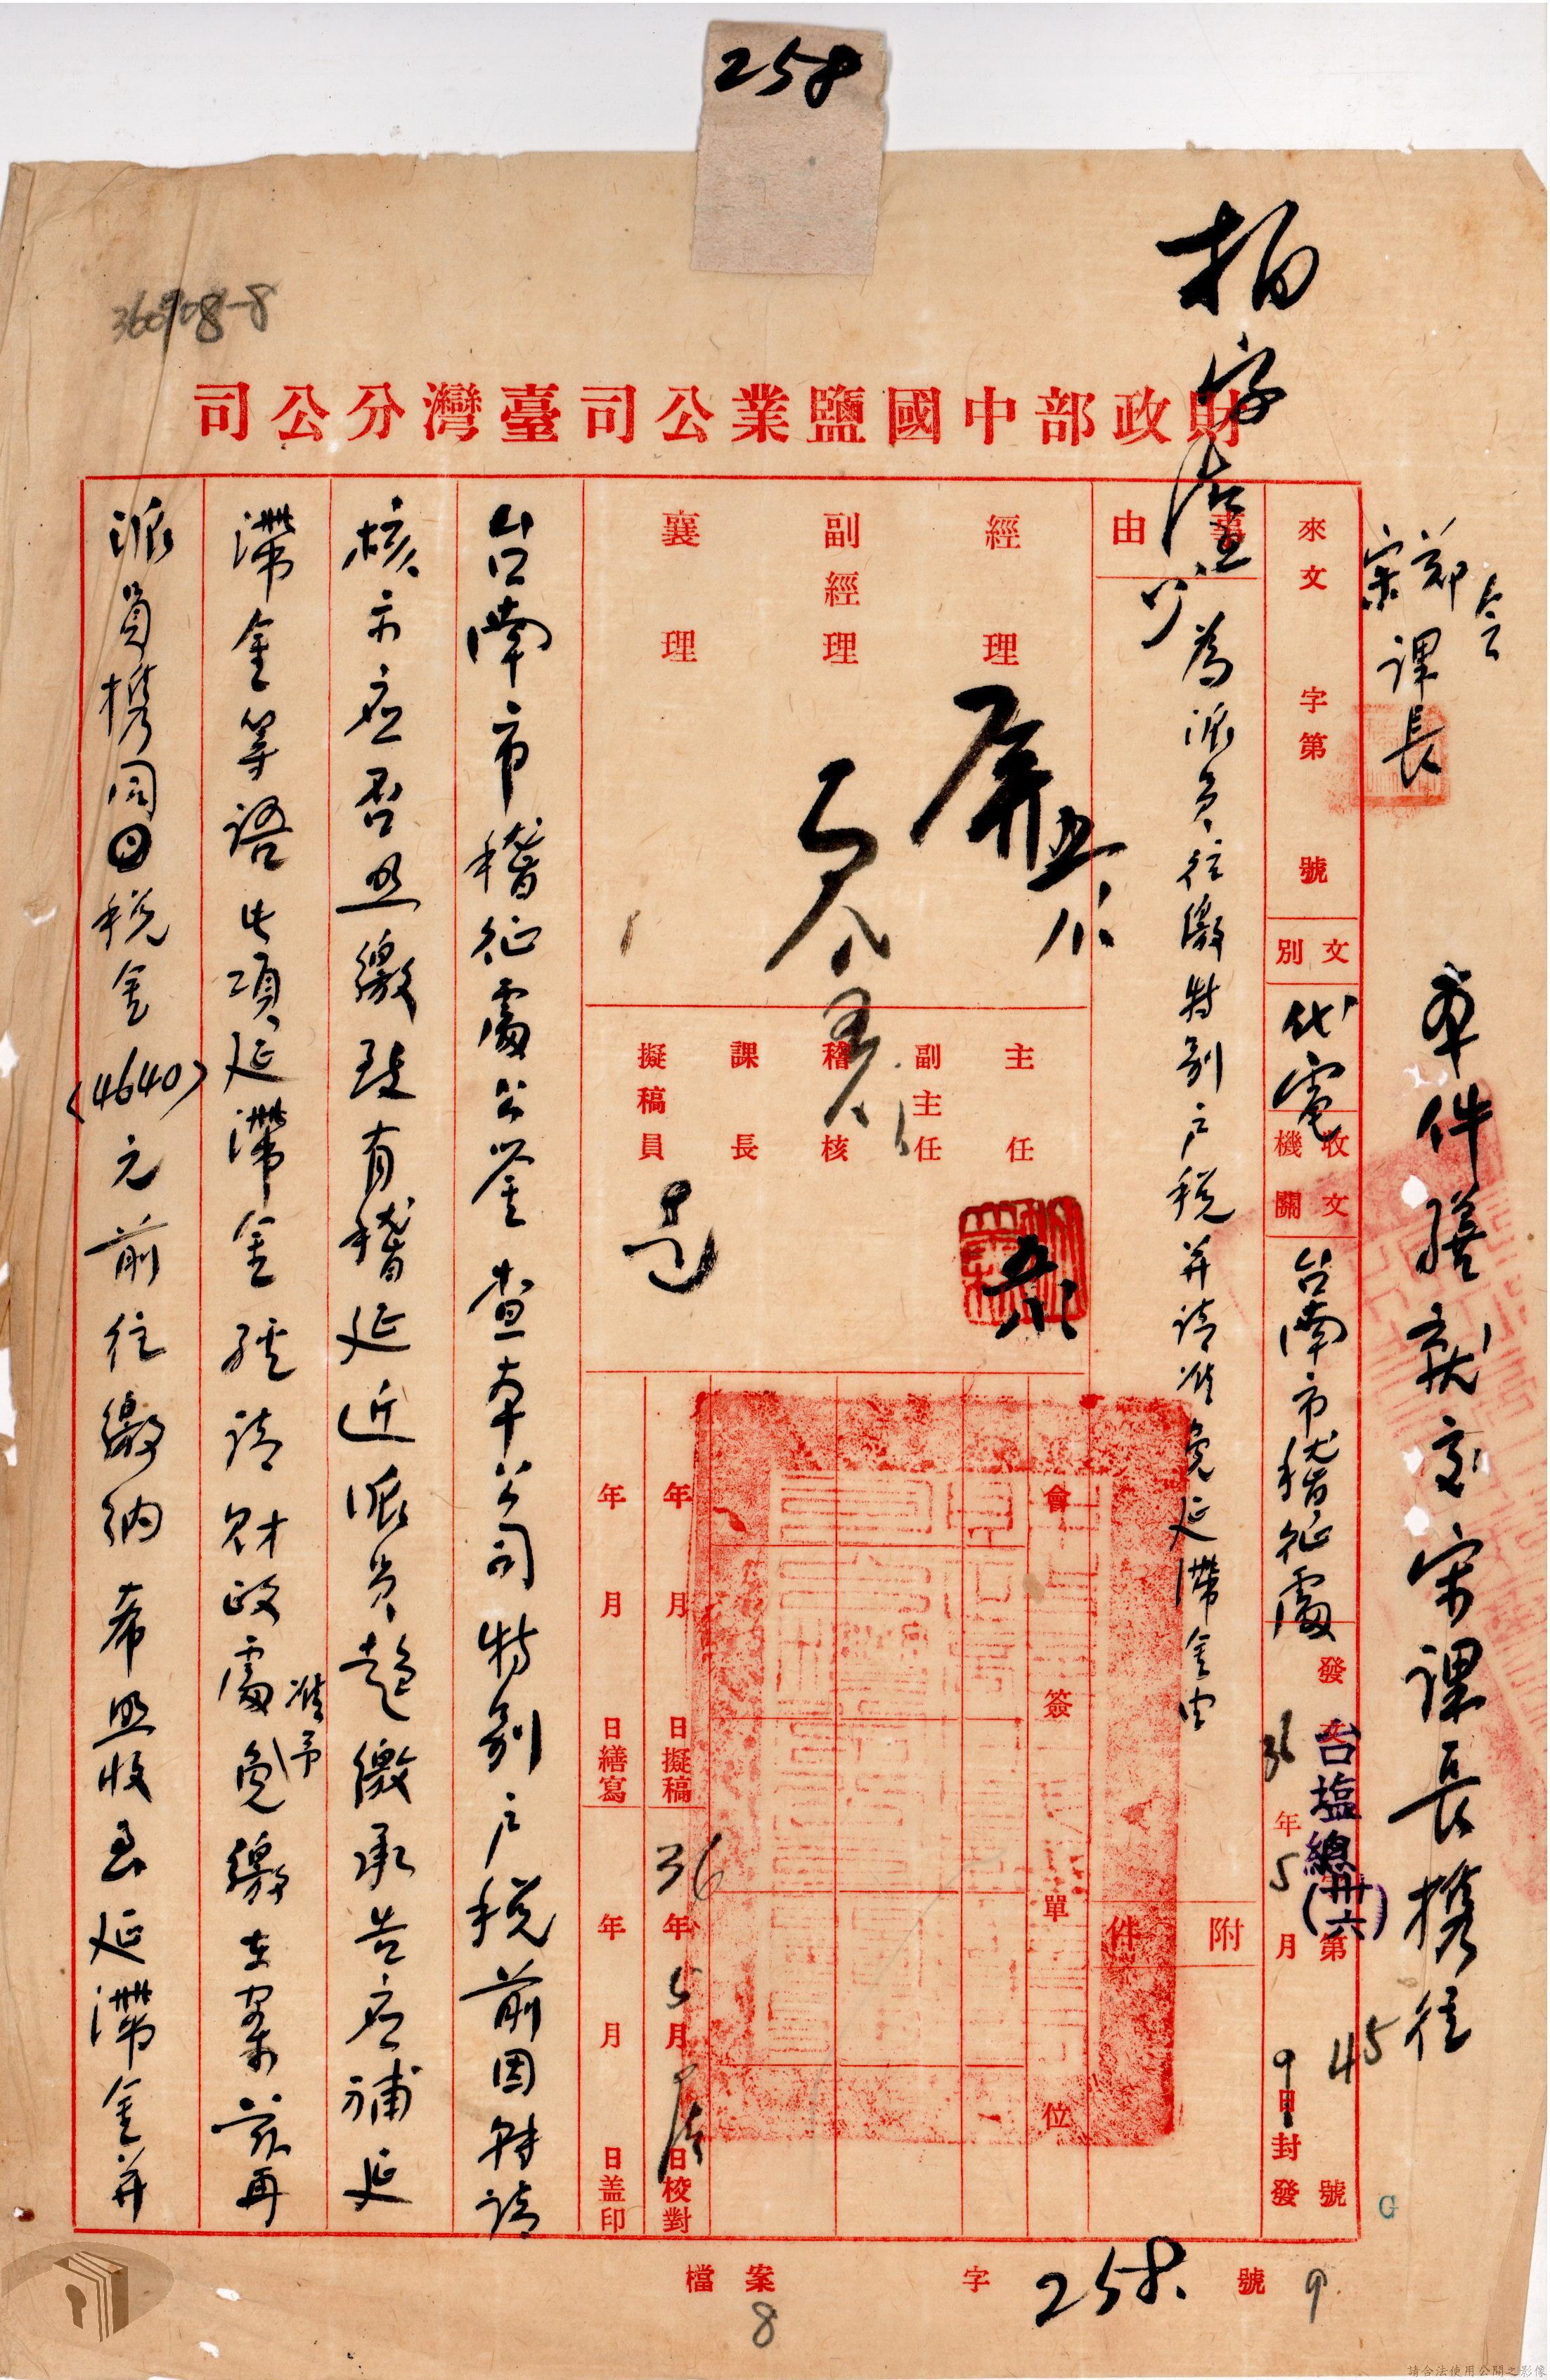 258
36058-8
財政部中國鹽業公司臺灣分公司
會
鄭
宋課長
本件謄就交宋課長携往
來文 字第 號
文別
代電
收文機關
台南市稽征處
發文 字第 號
台塩總(卅六)
45
36年5月9日封發
事由
為派員往繳特别戶税并請准免延滯金由
附件
經理
副經理
襄理
主任
副主任
稽核
課長
擬稿員
會簽單位
年 月 日擬稿
36年5月 日校對
年 月 日繕寫
年 月 日盖印
台南市稽征處公鉴 查本公司特别戶税前因歸請
核示应否照繳致有稽延近派員趋繳承告应補延
滯金等語此項延滯金經請財政處准予免繳在案茲再
派員携同税金(4640)元前往繳納希照收免延滯金并
檔案 字 258 號
8
9
G
請合法使用公開之影像